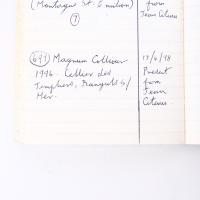 (Montagne St. Emilion)
from
Jean Citeus
(7)
(691) Magnum Collioure
1996. Cellier des
Templiers, Banyuls s/
Mer.
13/4/98
Present
from
Jean
Citeus